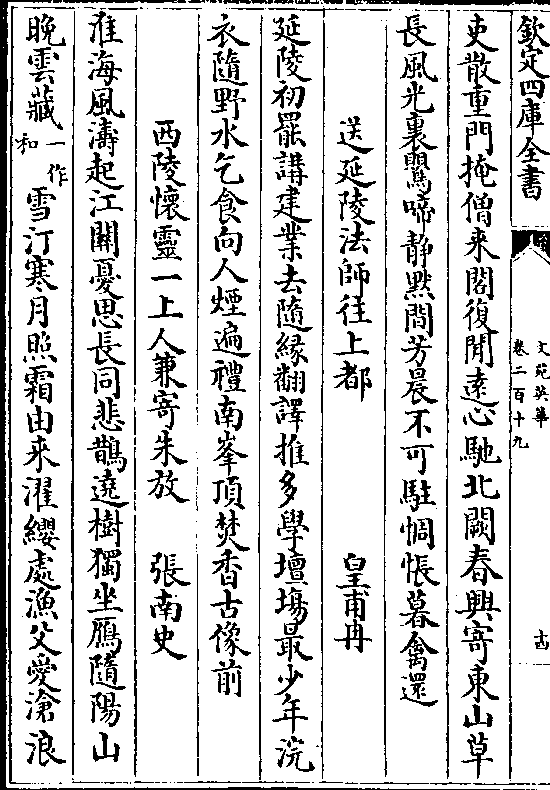 欽定四庫全書
文苑英華
卷二百十九
吏散重門掩僧来閣復閒遠心馳北闕春興寄東山草
長風光裏鸎啼静黙間芳晨不可駐惆悵暮禽還
送延陵法師往上都　皇甫冉
延陵初罷講建業去隨縁翻譯推多學壇塲最少年浣
衣隨野水乞食向人煙遍禮南峯頂焚香古像前
西陵懷靈一上人兼寄朱放　張南史
淮海風濤起江關憂思長同悲鵲遶樹獨坐鴈隨陽山
晚雲藏一作和雪汀寒月照霜由来濯纓處漁父愛滄浪